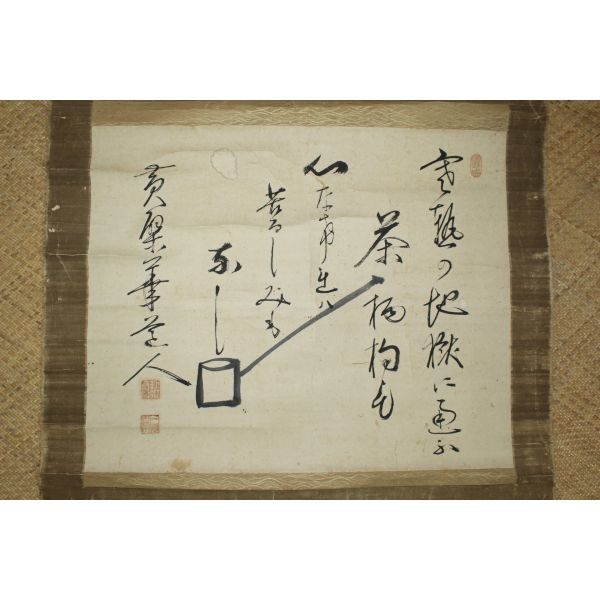 寒熱の地獄に通ふ
茶柄杓も
心なけれハ
苦るしみも
なし
黄檗華道人